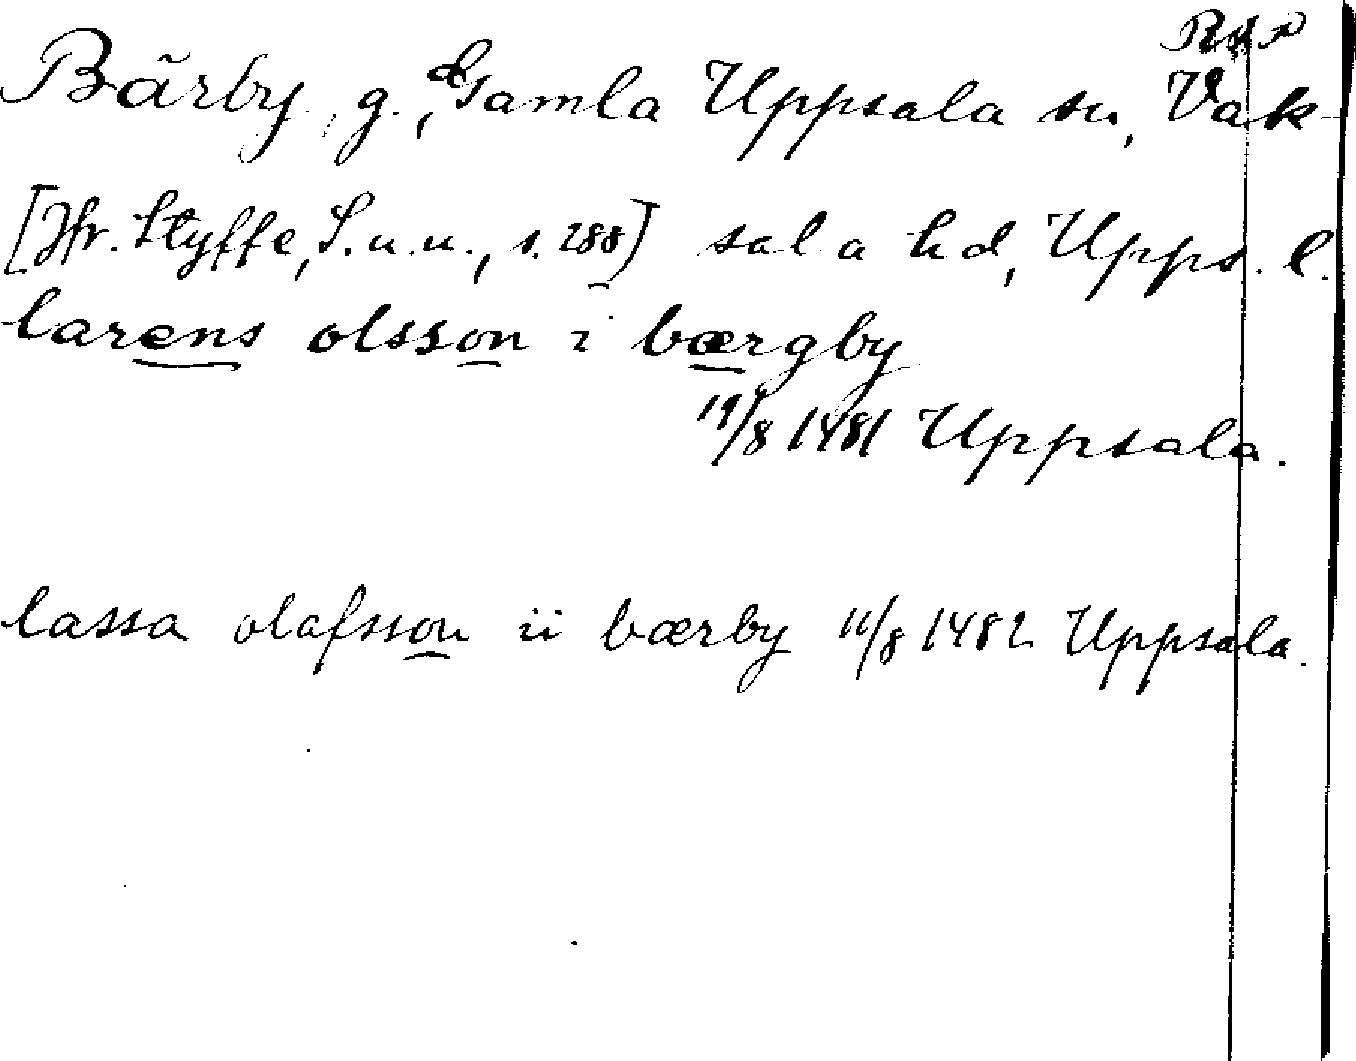 Bärby, g., Gamla Uppsala sn, Vak-
[Jfr. Styffe, S.u.u., s. 288] sala hd, Upps. l.
larens olsson i bærgby
19/8 1481 Uppsala.
lassa olafsson ii bærby 11/8 1482 Uppsala.